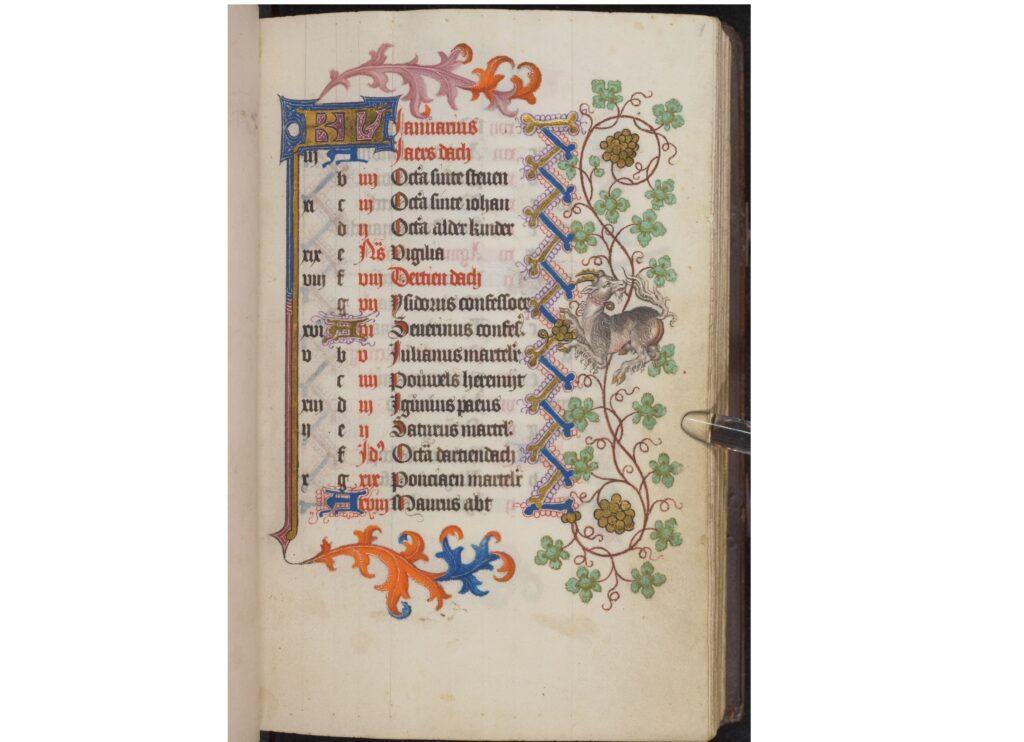 KL Januarius
iij A Jaers dach
b iiij Octã sinte steuen
xi c iij Octã sinte iohan
d ij Octã alder kinder
xix e Nõs Vigilia
viij f viij Dertien dach
g vij Ysidorus confessoer
xvi A vi Seuerinus confes.
v b v Julianus martelr̃
c iiij Pouwels heremijt
xiij d iij Igunius paeus
ij e ij Saturus martel.
f Jdꝰ Octã dartiendach
x g xix Ponciaen martelr̃
A xviij Maurus abt